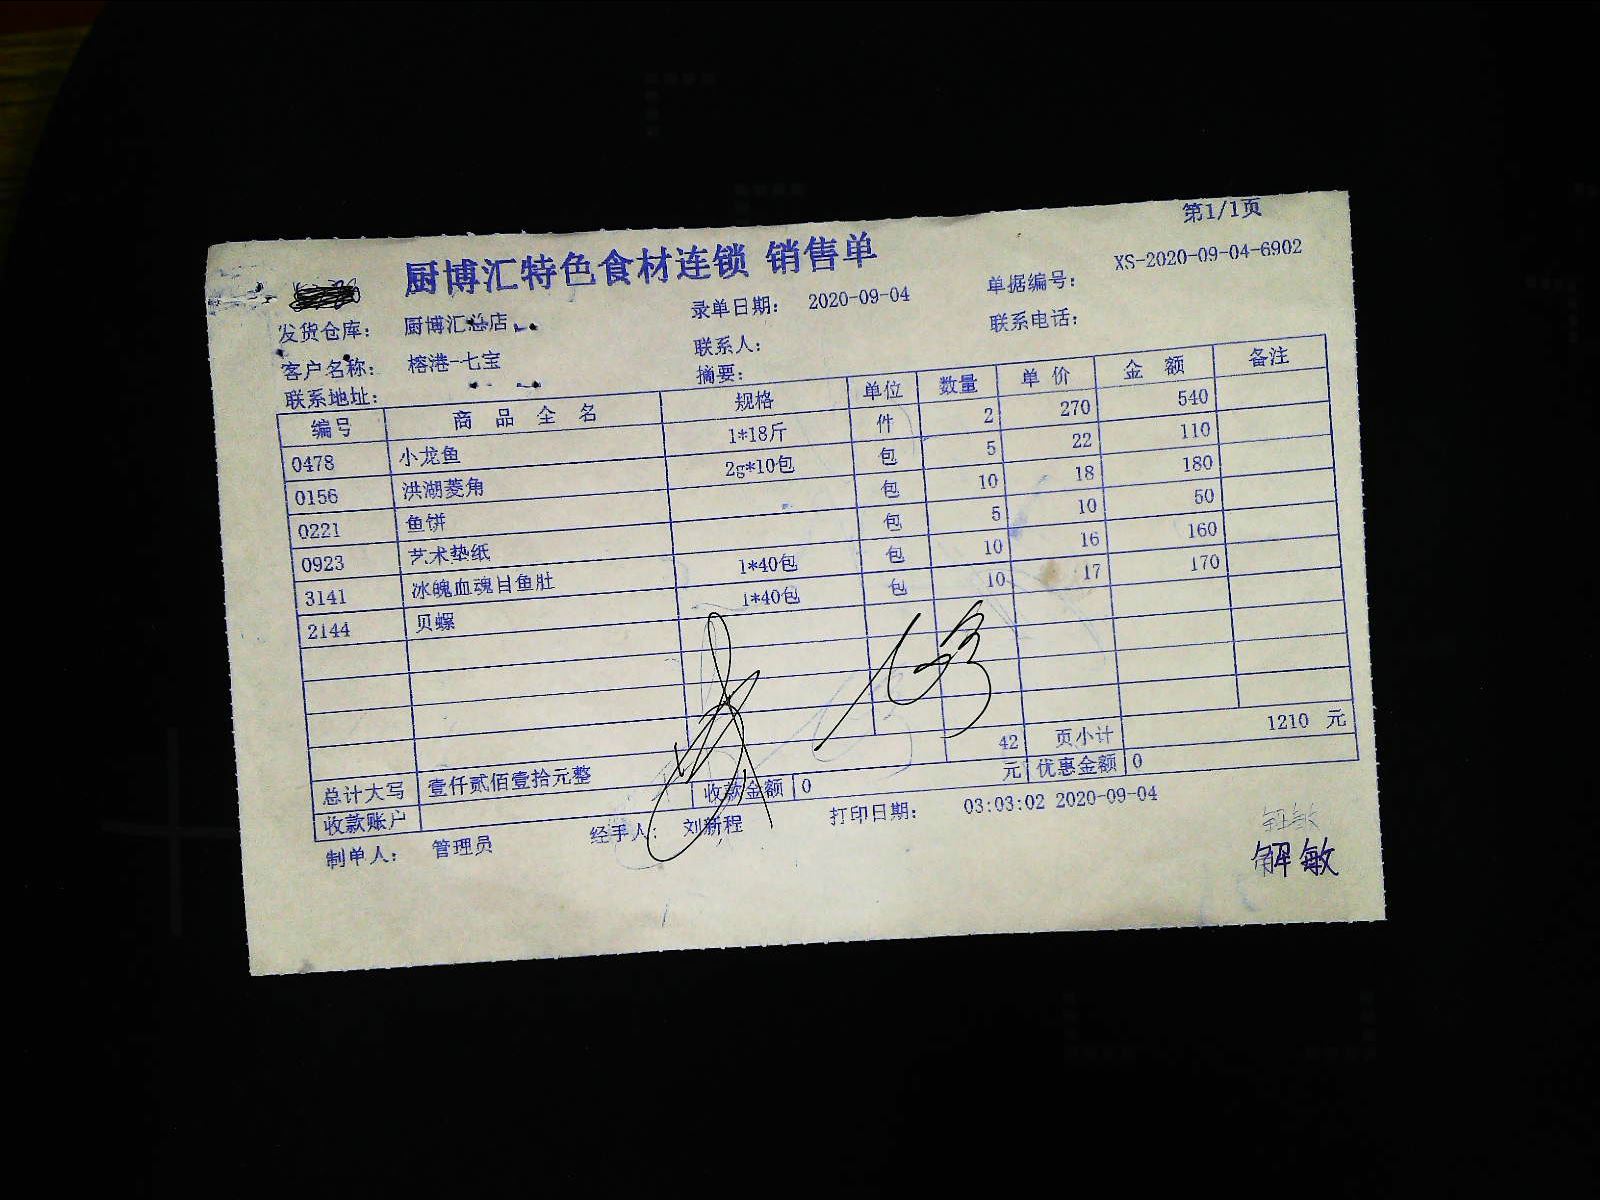 第1/1页
厨博汇特色食材连锁 销售单
发货仓库： 厨博汇总店 录单日期： 2020-09-04 单据编号： XS-2020-09-04-6902
客户名称： 榕港-七宝 联系人： 联系电话：
联系地址： 摘要：
编号 商 品 全 名 规格 单位 数量 单 价 金 额 备注
0478 小龙鱼 1*18斤 件 2 270 540
0156 洪湖菱角 2g*10包 包 5 22 110
0221 鱼饼 包 10 18 180
0923 艺术垫纸 包 5 10 50
3141 冰魄血魂目鱼肚 1*40包 包 10 16 160
2144 贝螺 1*40包 包 10 17 170
42 页小计 1210 元
总计大写 壹仟贰佰壹拾元整 收款金额 0 元 优惠金额 0
收款账户
制单人： 管理员 经手人： 刘新程 打印日期： 03:03:02 2020-09-04
解敏